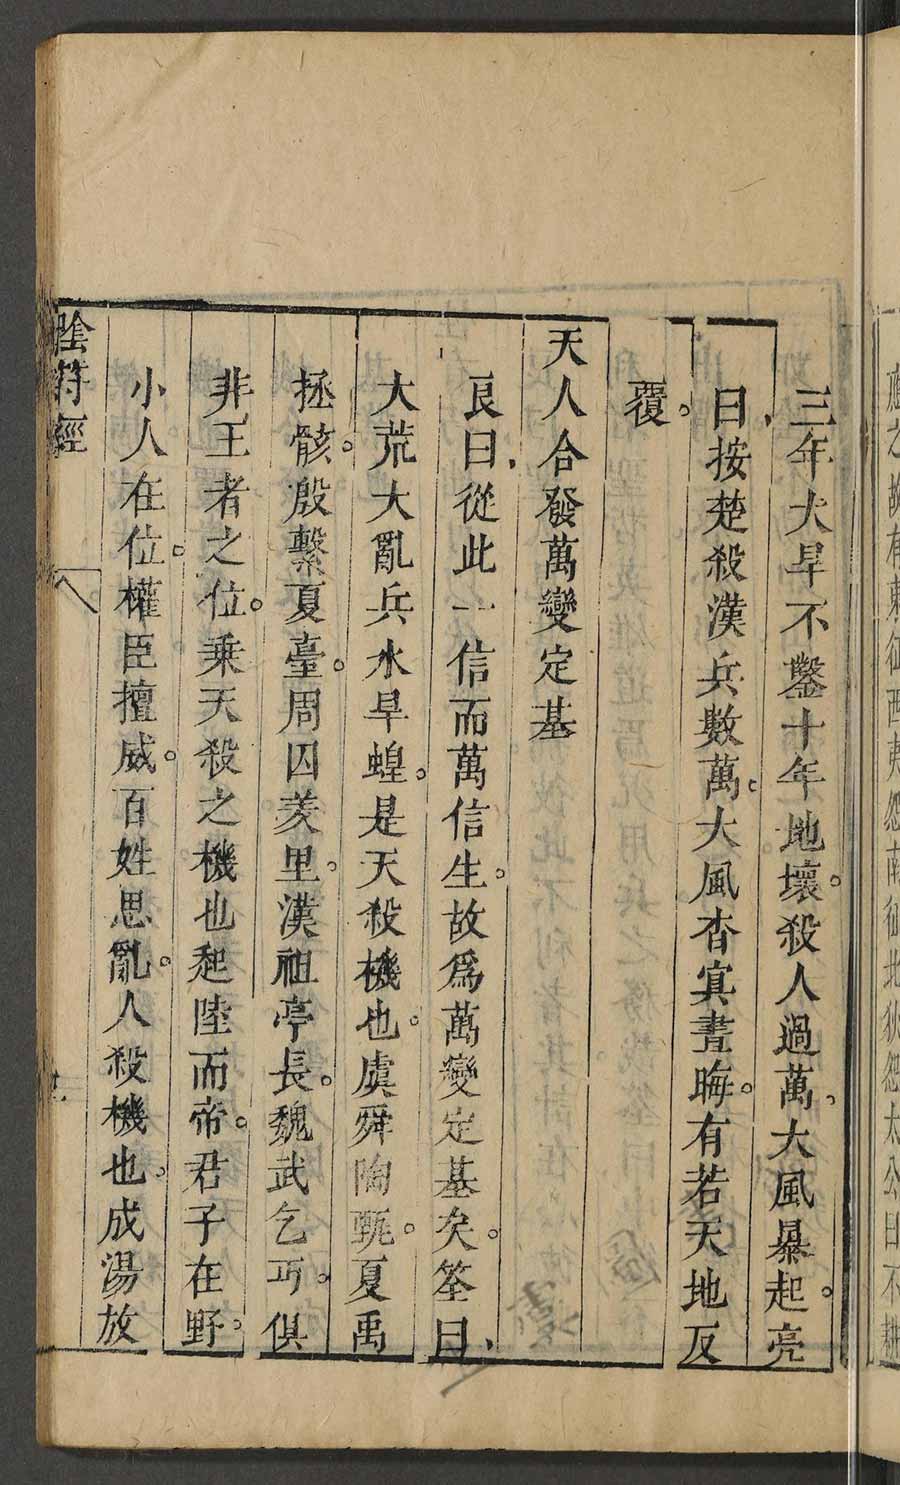 應之故有東征西夷怨南征北狄怨太公曰不耕
三年大旱不鑿十年地壞殺人過萬大風暴起亮
曰按楚殺漢兵數萬大風杳寘晝晦有若天地反
覆
天人合發萬變定基
良曰從此一信而萬信生故爲萬變定基矣筌曰
大荒大亂兵水旱蝗是天殺機也虞舜陶甄夏禹
拯骸殷繫夏臺周囚羑里漢祖亭長魏武乞丐俱
非王者之位乗天殺之機也起陸而帝君子在野
小人在位權臣擅威百姓思亂人殺機也成湯放
陰符經